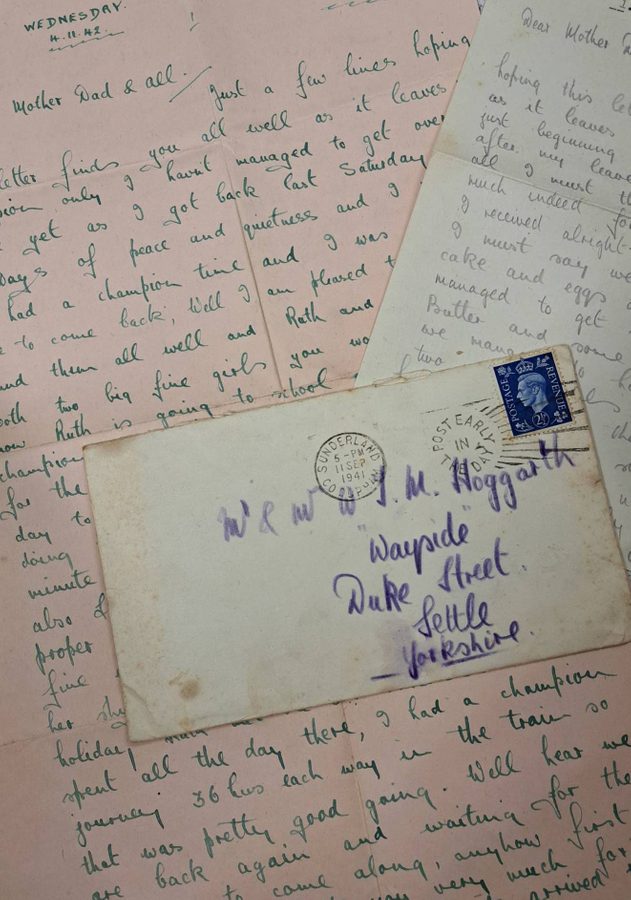 WEDNESDAY.
4.11.42.
Mother Dad & all.
Just a few lines hoping
letter finds you all well as it leaves
only I havnt managed to get over
yet as I got back last Saturday
days of peace and quietness and I
had a champion time and I was
to come back, Well I am pleased
and them all well and Ruth and
two big fine girls you
now Ruth is going to school
champion
for the
day to
doing
minute
also
proper
fine
her
holiday
spent all the day there, I had a champion
journey 36 hrs each way in the train so
that was pretty good going. Well hear we
are back again and waiting for the
to come along, anyhow first
you very much for
arrived
Dear Mother
hoping this
as it leaves
just beginning
after my leave
all I must
much indeed for
I received alright
I must say we
cake and eggs
managed to get
Butter and some
we managed
two
SUNDERLAND
5 - PM
11 SEP
1941
CO. DURHAM
POST EARLY
IN
THE DAY
POSTAGE REVENUE
2½D
Mr & Mrs W J. M. Hoggarth
"Wayside"
Duke Street.
Settle
Yorkshire.